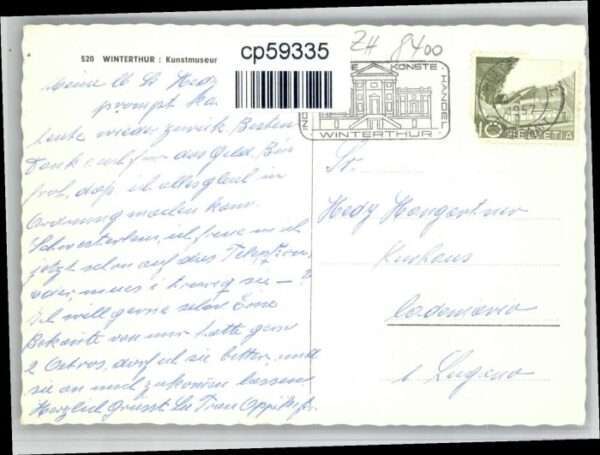 520 WINTERTHUR : Kunstmuseum
cp59335
ZH 8400
KÜNSTE
HANDEL
WINTERTHUR
1957
10 HELVETIA
Meine lb Sr Hedy
prompt
heute wieder zurück. Besten
Dank auch für das Geld. Bin
froh, dass ich alles glaub in
Ordnung machen kann.
ich freue mich
jetzt schon auf das Telefon,
oder muss i traurig sie — ?
Ich will gerne schon Eine
Bekannte von mir hätte gern
2 Ostros, darf ich sie bitten, und
sie an mich zukommen lassen
Herzlich Grüsst Sie Frau
Sr.
Hedy Hangartner
Kurhaus
Cademario
b Lugano